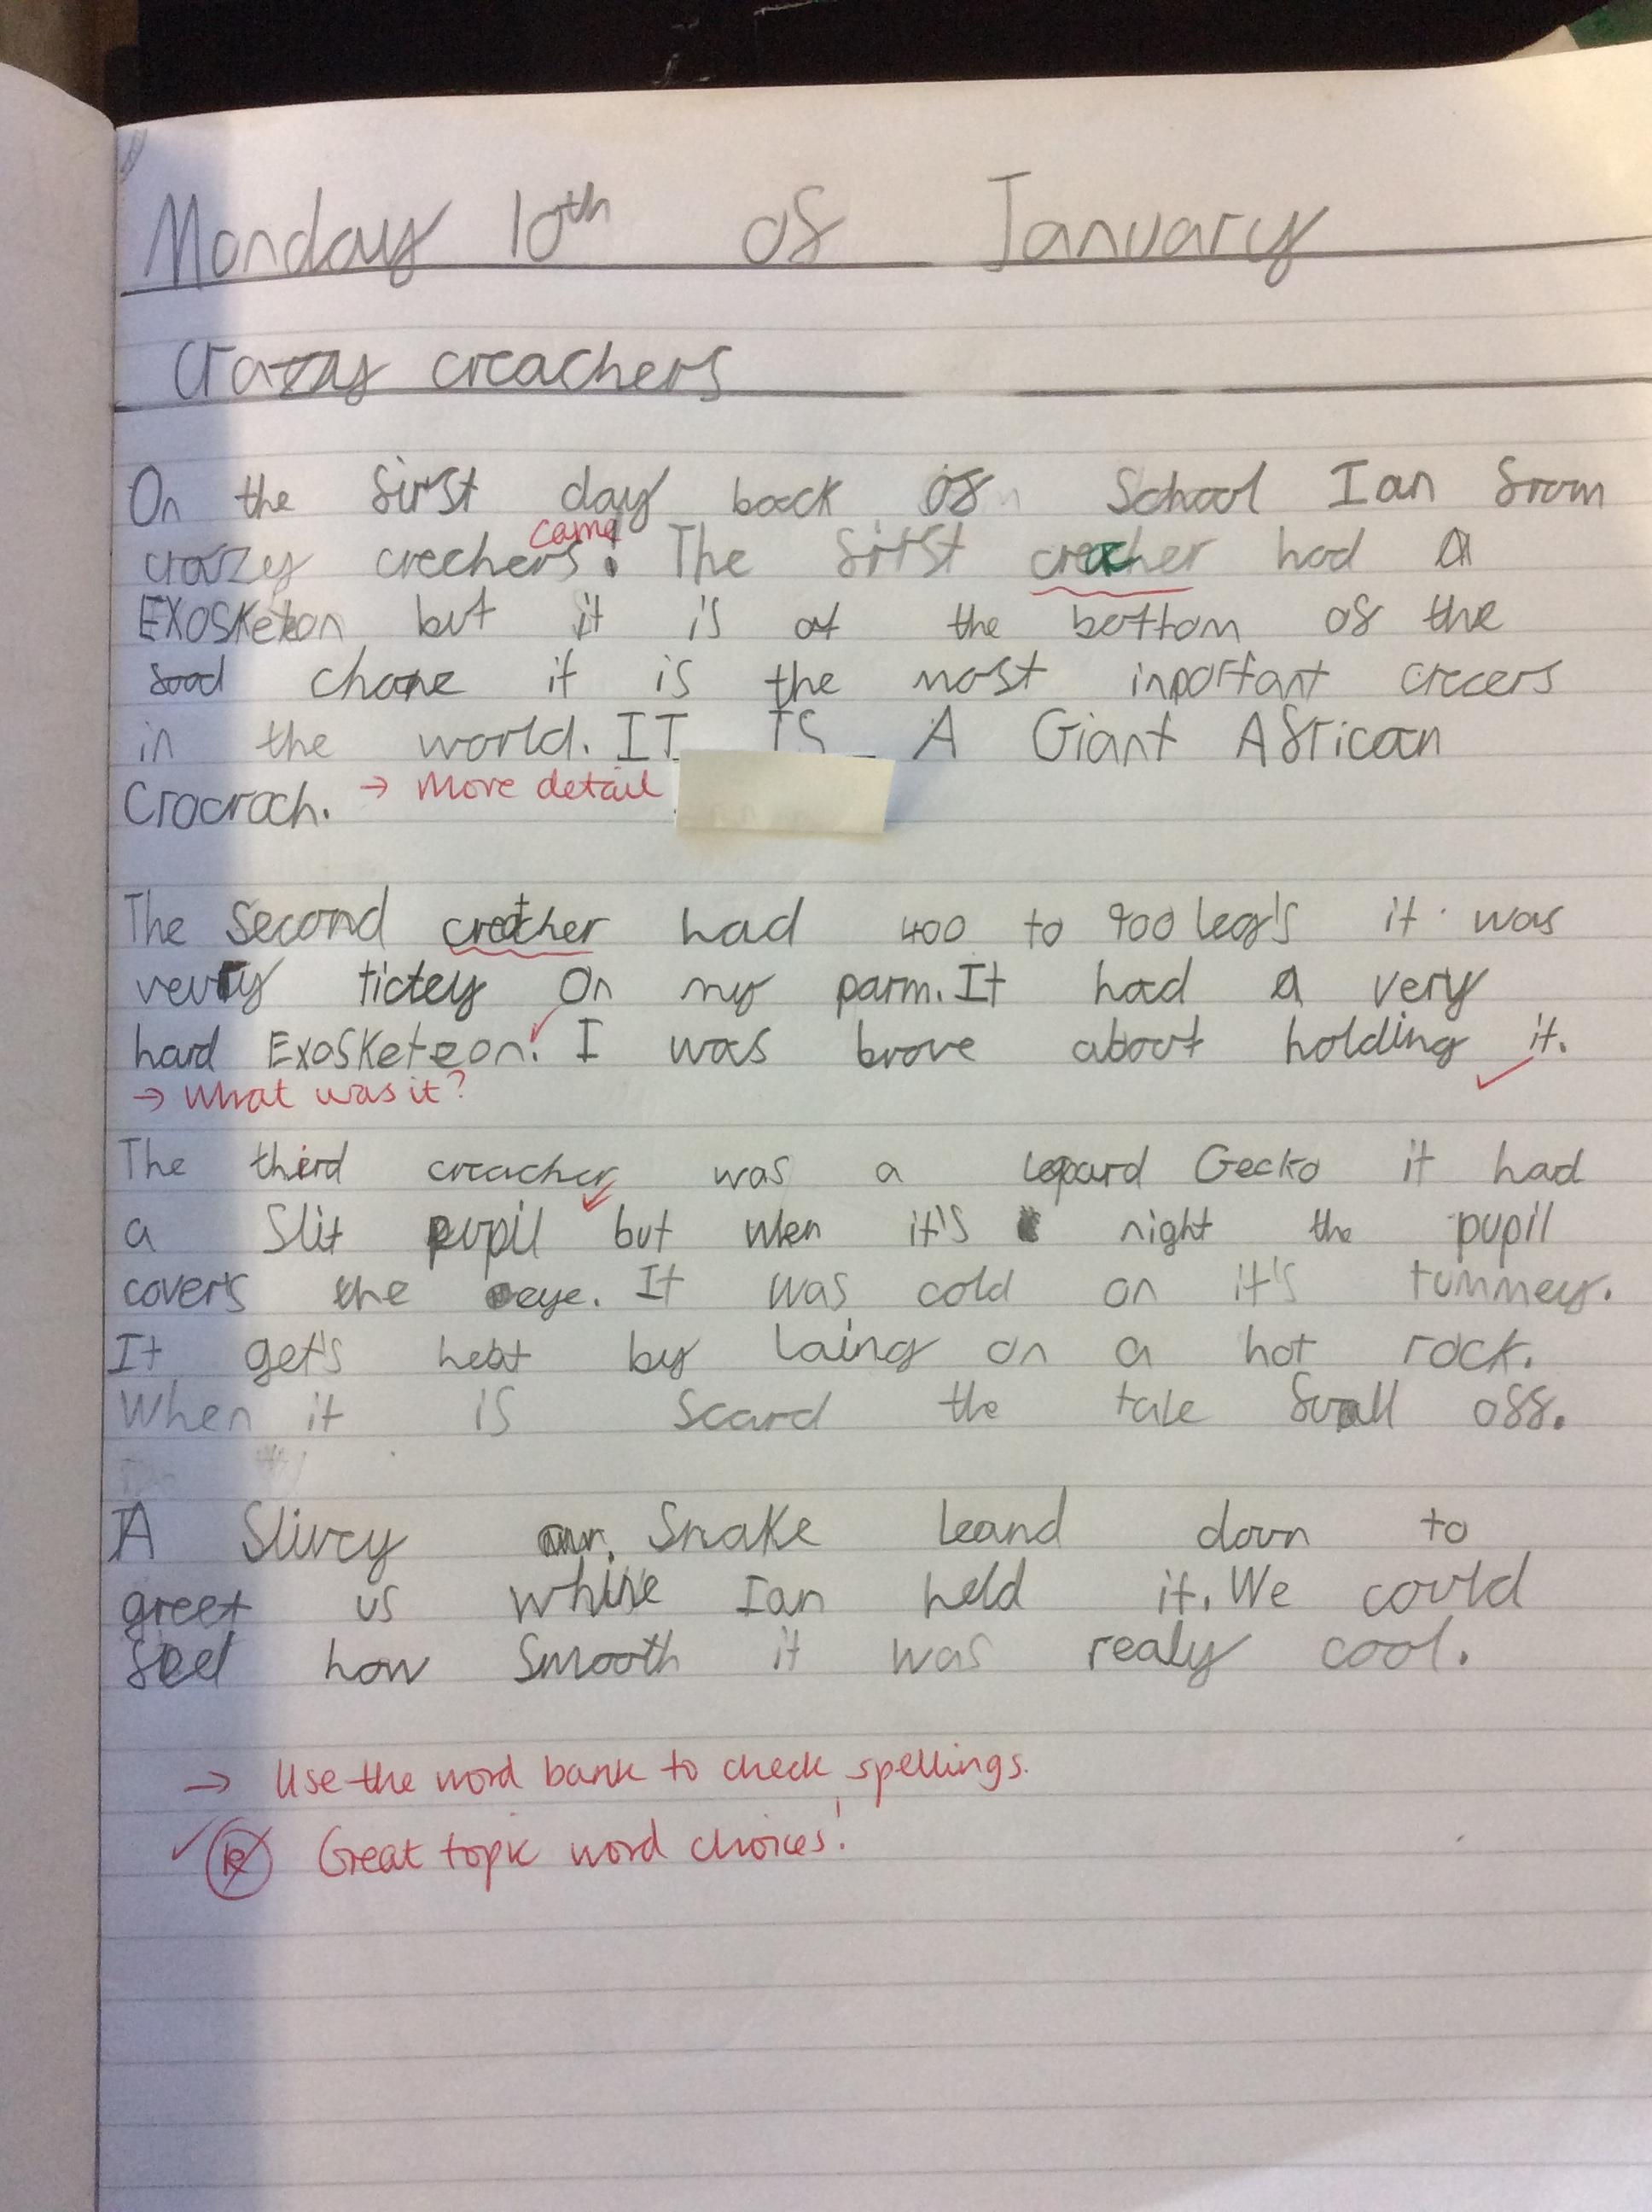 Monday 10th of January
Crazzy creachers
On the first day back of School Ian from
came
crazzy crechers. The first creacher had a
Exosketeon but it is at the bottom of the
food chane it is the most inportant crecers
in the world. IT IS A Giant African
Crocroch. → More detail
The second creatcher had 400 to 900 leg's it was
verry tictey On my parm. It had a very
hard Exosketeon! I was brave about holding it.
→ What was it?
The third creacher was a lepard Gecko it had
a Slit pupil but when it's night the pupil
cover's the eye. It was cold on it's tummey.
It get's heat by laing on a hot rock.
When it is Scard the tale fuall off.
A Slivey Snake leand down to
greet us while Ian held it. We could
feel how Smooth it was realy cool.
→ Use the word bank to check spellings.
✓ Great topic word choices!